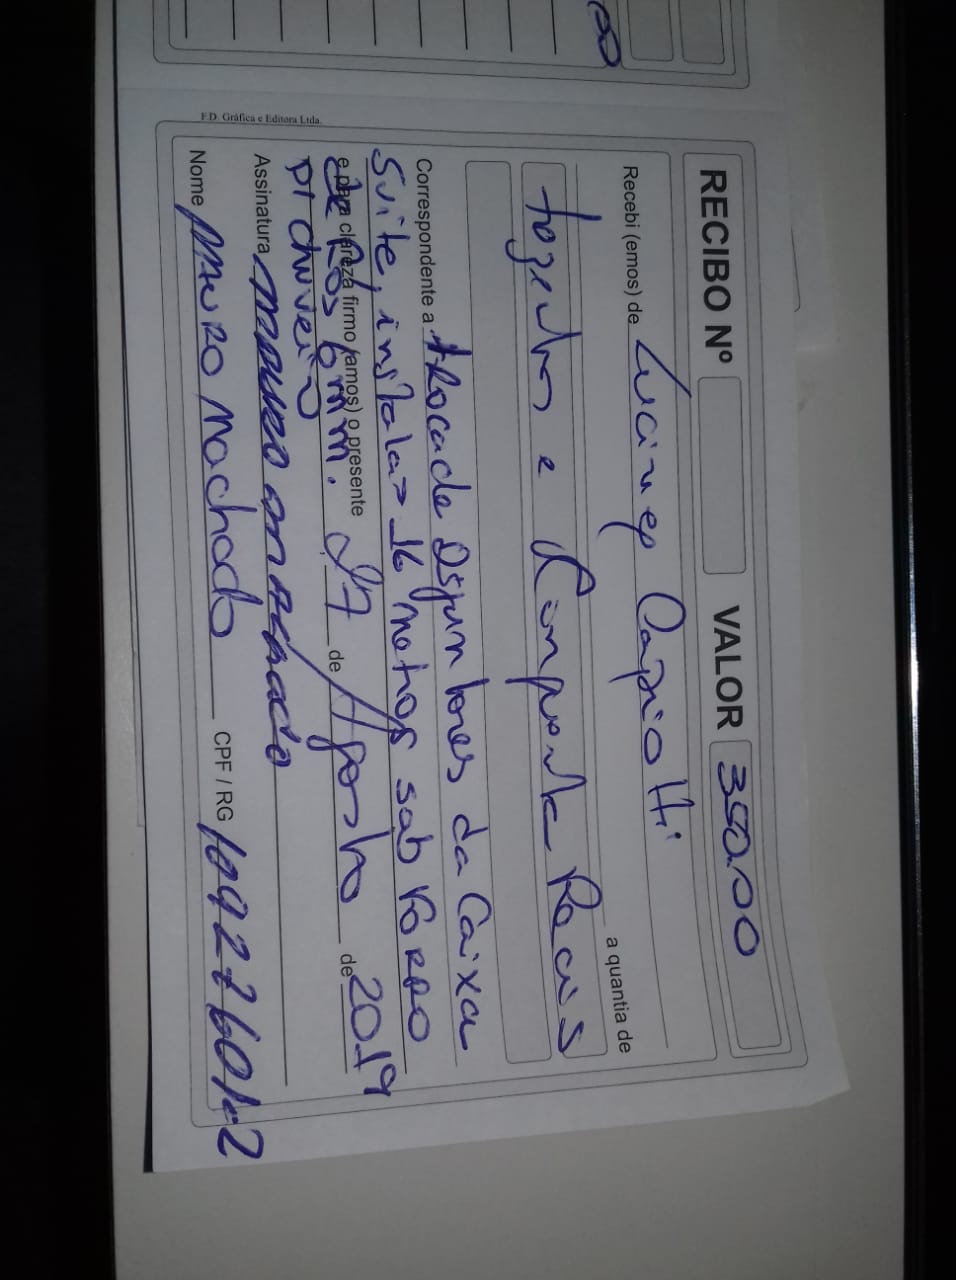 RECIBO Nº VALOR 350.00
Recebi (emos) de Lucimep Capriotti
a quantia de
trezentos e Cinquenta Reais
Correspondente a troca de Disjuntores da Caixa
Suite, instalas 16 metros sab forro
e para clareza firmo (amos) o presente 27 de Agosto de 2019
de fios 6mm.
p/ chuveiro
Assinatura Mauro Machado
Nome Mauro Machado CPF / RG
F.D. Gráfica e Editora Ltda.
00